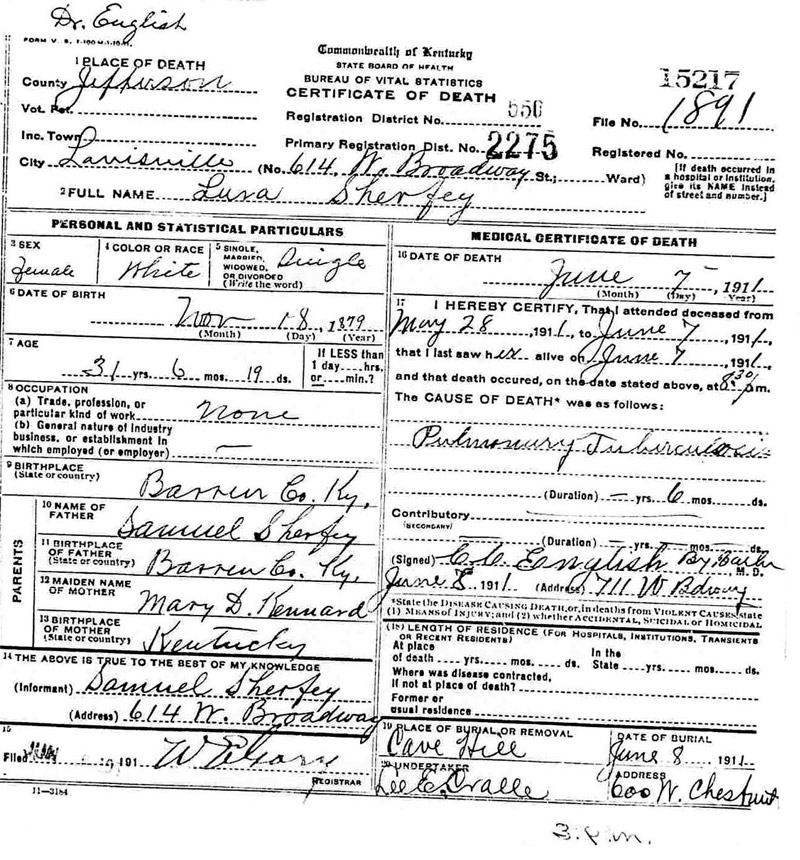 Dr. English
FORM V. S. 1-100 M-1-10-11.
Commonwealth of Kentucky
STATE BOARD OF HEALTH
BUREAU OF VITAL STATISTICS
CERTIFICATE OF DEATH
1 PLACE OF DEATH
County Jefferson
Vot. Pct.
Inc. Town
City Louisville (No. 614 W. Broadway St.; Ward)
Registration District No. 550
Primary Registration Dist. No. 2275
15217
File No. 1891
Registered No.
[If death occurred in
a hospital or institution,
give its NAME instead
of street and number.]
2 FULL NAME Lura Sherfey
PERSONAL AND STATISTICAL PARTICULARS
3 SEX
Female
4 COLOR OR RACE
White
5 SINGLE,
MARRIED,
WIDOWED,
OR DIVORCED
(Write the word)
Single
6 DATE OF BIRTH
Nov 18, 1879
(Month) (Day) (Year)
7 AGE
31 yrs. 6 mos. 19 ds.
If LESS than
1 day....hrs.
or....min.?
8 OCCUPATION
(a) Trade, profession, or
particular kind of work None
(b) General nature of industry
business, or establishment in
which employed (or employer) —
9 BIRTHPLACE
(State or country)
Barren Co. Ky.
PARENTS
10 NAME OF
FATHER
Samuel Sherfey
11 BIRTHPLACE
OF FATHER
(State or country)
Barren Co. Ky.
12 MAIDEN NAME
OF MOTHER
Mary D. Kennard
13 BIRTHPLACE
OF MOTHER
(State or country)
Kentucky
14 THE ABOVE IS TRUE TO THE BEST OF MY KNOWLEDGE
(Informant) Samuel Sherfey
(Address) 614 W. Broadway
15
Filed 191
REGISTRAR
11—3184
MEDICAL CERTIFICATE OF DEATH
16 DATE OF DEATH
June 7 1911
(Month) (Day) (Year)
17 I HEREBY CERTIFY, That I attended deceased from
May 28, 1911, to June 7, 1911,
that I last saw her alive on June 7, 1911,
and that death occured, on the date stated above, at 8:30 p.m.
The CAUSE OF DEATH* was as follows:
Pulmonary Tuberculosis
(Duration) — yrs. 6 mos. ds.
Contributory
(SECONDARY)
(Duration) — yrs. — mos. ds.
(Signed) C. C. English By M. D.
June 8, 1911 (Address) 711 W Bdway
*State the DISEASE CAUSING DEATH, or, in deaths from VIOLENT CAUSES, state
(1) MEANS OF INJURY; and (2) whether ACCIDENTAL, SUICIDAL or HOMICIDAL
(18) LENGTH OF RESIDENCE (FOR HOSPITALS, INSTITUTIONS, TRANSIENTS
OR RECENT RESIDENTS)
At place In the
of death .... yrs. .... mos. .... ds. State .... yrs. .... mos. .... ds.
Where was disease contracted,
If not at place of death?
Former or
usual residence
19 PLACE OF BURIAL OR REMOVAL
Cave Hill
DATE OF BURIAL
June 8 1911
20 UNDERTAKER
Lee E. Cralle
ADDRESS
600 W. Chestnut
3. p.m.